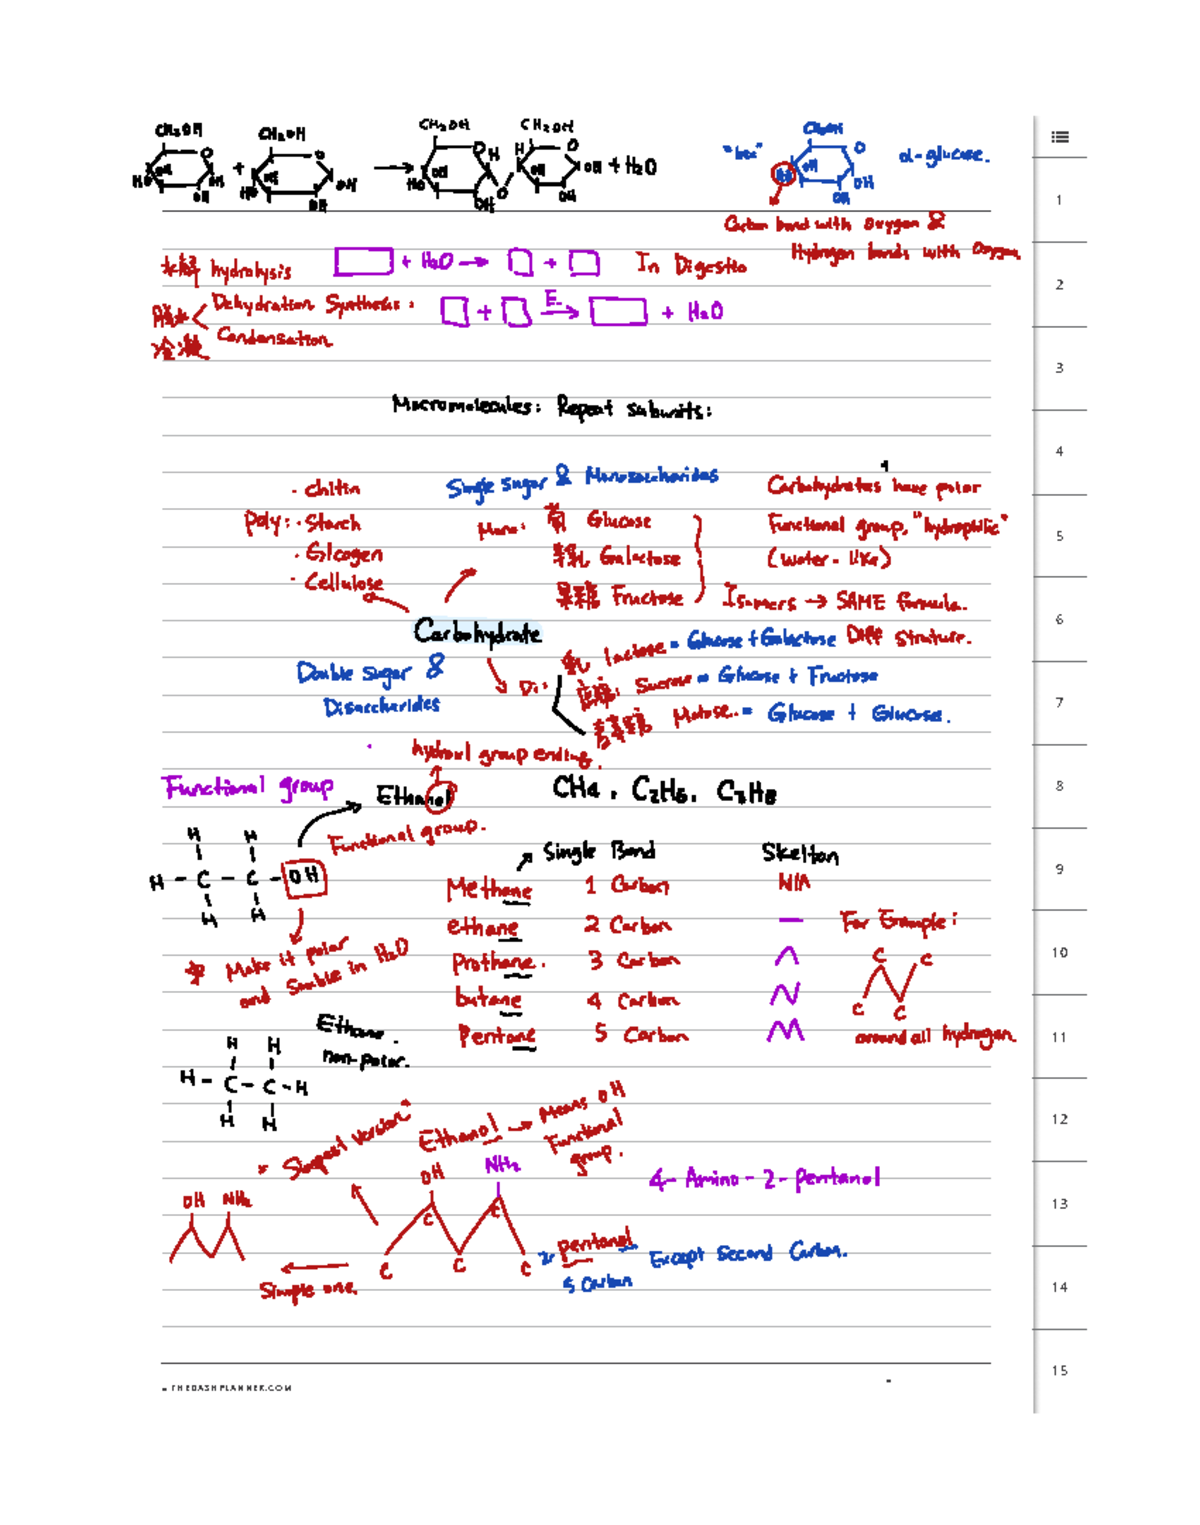 CH2OH
CH2OH
CH2OH
CH2OH
CH2OH
+
O
O
HO
OH
OH
OH
HO
OH
OH
OH
OH
HO
OH
O
H
O
H
O
OH
OH
OH
OH
+ H2O
O
OH
OH
OH
α-glucose.
Carbon bond with Oxygen &
Hydrogen bonds with Oxygen
水解 hydrolysis
+ H2O → +
In Digestio
脱水
Dehydration Synthesis:
+ E. → + H2O
冷凝
Condensation
Macromolecules: Repeat subunits:
Single sugar & Monosaccharides
Carbohydrates have polar
Functional group, "hydrophilic"
(Water-like)
· chitin
Poly: · Starch
· Glcogen
· Cellulose
Mono:
Glucose
Galactose
Fructose
Isomers → SAME formula.
DIFF Struture.
Carbohydrate
Double Sugar &
Disaccharides
Di:
lactose = Glucose + Galactose
Sucrose = Glucose + Fructose
Maltose. = Glucose + Glucose.
hydroxl group ending.
Functional group
Ethanol
CH4 , C2H6, C3H8
Functional group.
H H
H - C - C - OH
H H
Make it polar
and Souble in H2O
Single Bond
Skelton
Methane 1 Carbon N/A
ethane 2 Carbon
Prothane. 3 Carbon
butane 4 Carbon
Pentane 5 Carbon
For Example:
C C
C C
around all hydrogen.
Ethane.
non-polar.
H H
H - C - C - H
H H
Simpest version"
Ethanol → Means OH
Functional
group.
OH NH2
OH
NH2
C C
C C C
4-Amino-2-pentanol
pentanol
5 Carbon
Except Second Carbon.
Simple one.
THEDASHPLANNER.COM
1
2
3
4
5
6
7
8
9
10
11
12
13
14
15